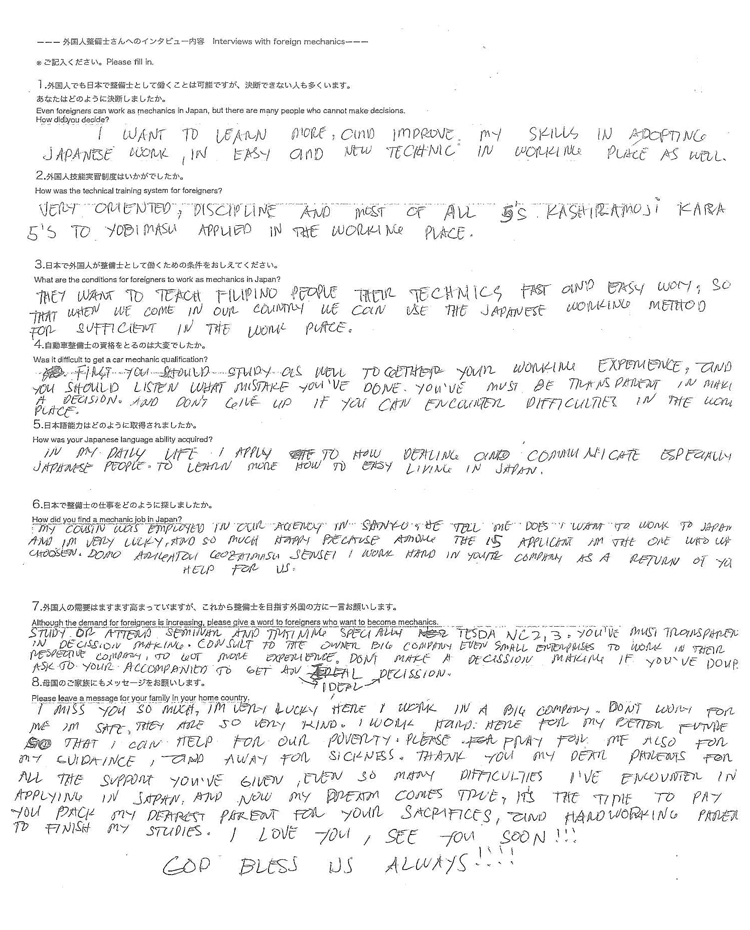 ーーー 外国人整備士さんへのインタビュー内容　Interviews with foreign mechanicsーーー
※ご記入ください。Please fill in.
1.外国人でも日本で整備士として働くことは可能ですが、決断できない人も多くいます。
あなたはどのように決断しましたか。
Even foreigners can work as mechanics in Japan, but there are many people who cannot make decisions.
How did you decide?
I WANT TO LEARN MORE, AND IMPROVE MY SKILLS IN ADOPTING
JAPANESE WORK, IN EASY AND NEW TECHNIC IN WORKING PLACE AS WELL.
2.外国人技能実習制度はいかがでしたか。
How was the technical training system for foreigners?
VERY ORIENTED, DISCIPLINE AND MOST OF ALL 5'S KASHIRAMOJI KARA
5'S TO YOBIMASU APPLIED IN THE WORKING PLACE.
3.日本で外国人が整備士として働くための条件をおしえてください。
What are the conditions for foreigners to work as mechanics in Japan?
THEY WANT TO TEACH FILIPINO PEOPLE THEIR TECHNICS FAST AND EASY WAY, SO
THAT WHEN WE COME IN OUR COUNTRY WE CAN USE THE JAPANESE WORKING METHOD
FOR SUFFICIENT IN THE WORK PLACE.
4.自動車整備士の資格をとるのは大変でしたか。
Was it difficult to get a car mechanic qualification?
FIRST YOU SHOULD STUDY AS WELL TOGETHER YOUR WORKING EXPERIENCE, AND
YOU SHOULD LISTEN WHAT MISTAKE YOU'VE DONE. YOU'VE MUST BE TRANSPARENT IN MAKI
A DECISION. AND DON'T GIVE UP IF YOU CAN ENCOUNTER DIFFICULTIES IN THE WORK
PLACE.
5.日本語能力はどのように取得されましたか。
How was your Japanese language ability acquired?
IN MY DAILY LIFE I APPLY TO HOW DEALING AND COMMUNICATE ESPECIALLY
JAPANESE PEOPLE. TO LEARN MORE HOW TO EASY LIVING IN JAPAN.
6.日本で整備士の仕事をどのように探しましたか。
How did you find a mechanic job in Japan?
MY COUSIN WAS EMPLOYED IN OUR AGENCY IN SANKU, HE TELL ME DOES I WANT TO WORK TO JAPAN
AND IM VERY LUCKY, AND SO MUCH HAPPY BECAUSE AMONG THE 15 APPLICANT IM THE ONE WHO WA
CHOOSEN. DOMO ARIGATOU GOZAIMASU SENSEI I WORK HARD IN YOUR COMPANY AS A RETURN OF YO
HELP FOR US.
7.外国人の需要はますます高まっていますが、これから整備士を目指す外国の方に一言お願いします。
Although the demand for foreigners is increasing, please give a word to foreigners who want to become mechanics.
STUDY OR ATTEND SEMINAR AND TRAINING SPECIALLY TESDA NC2,3. YOU'VE MUST TRANSPAREN
IN DECISSION MAKING. CONSULT TO THE OWNER BIG COMPANY EVEN SMALL ENTERPRISES TO WORK IN THEIR
RESPECTIVE COMPANY, TO GOT MORE EXPERIENCE. DONT MAKE A DECISSION MAKING IF YOU'VE DOUP.
ASK TO YOUR ACCOMPANIED TO GET AN DECISSION.
IDEAL
8.母国のご家族にもメッセージをお願いします。
Please leave a message for your family in your home country.
I MISS YOU SO MUCH, IM VERY LUCKY HERE I WORK IN A BIG COMPANY. DONT WORY FOR
ME IM SAFE, THEY ARE SO VERY KIND. I WORK HARD HERE FOR MY BETTER FUTURE
SO THAT I CAN HELP FOR OUR POVERTY. PLEASE PRAY FOR ME ALSO FOR
MY GUIDAINCE, AND AWAY FOR SICKNESS. THANK YOU MY DEAR PARENTS FOR
ALL THE SUPPORT YOU'VE GIVEN, EVEN SO MANY DIFFICULTIES I'VE ENCOUNTER IN
APPLYING IN JAPAN, AND NOW MY DREAM COMES TRUE, IT'S THE TIME TO PAY
YOU BACK MY DEAREST PARENT FOR YOUR SACRIFICES, AND HARDWORKING PAREN
TO FINISH MY STUDIES. I LOVE YOU, SEE YOU SOON!!!
GOD BLESS US ALWAYS!!!!